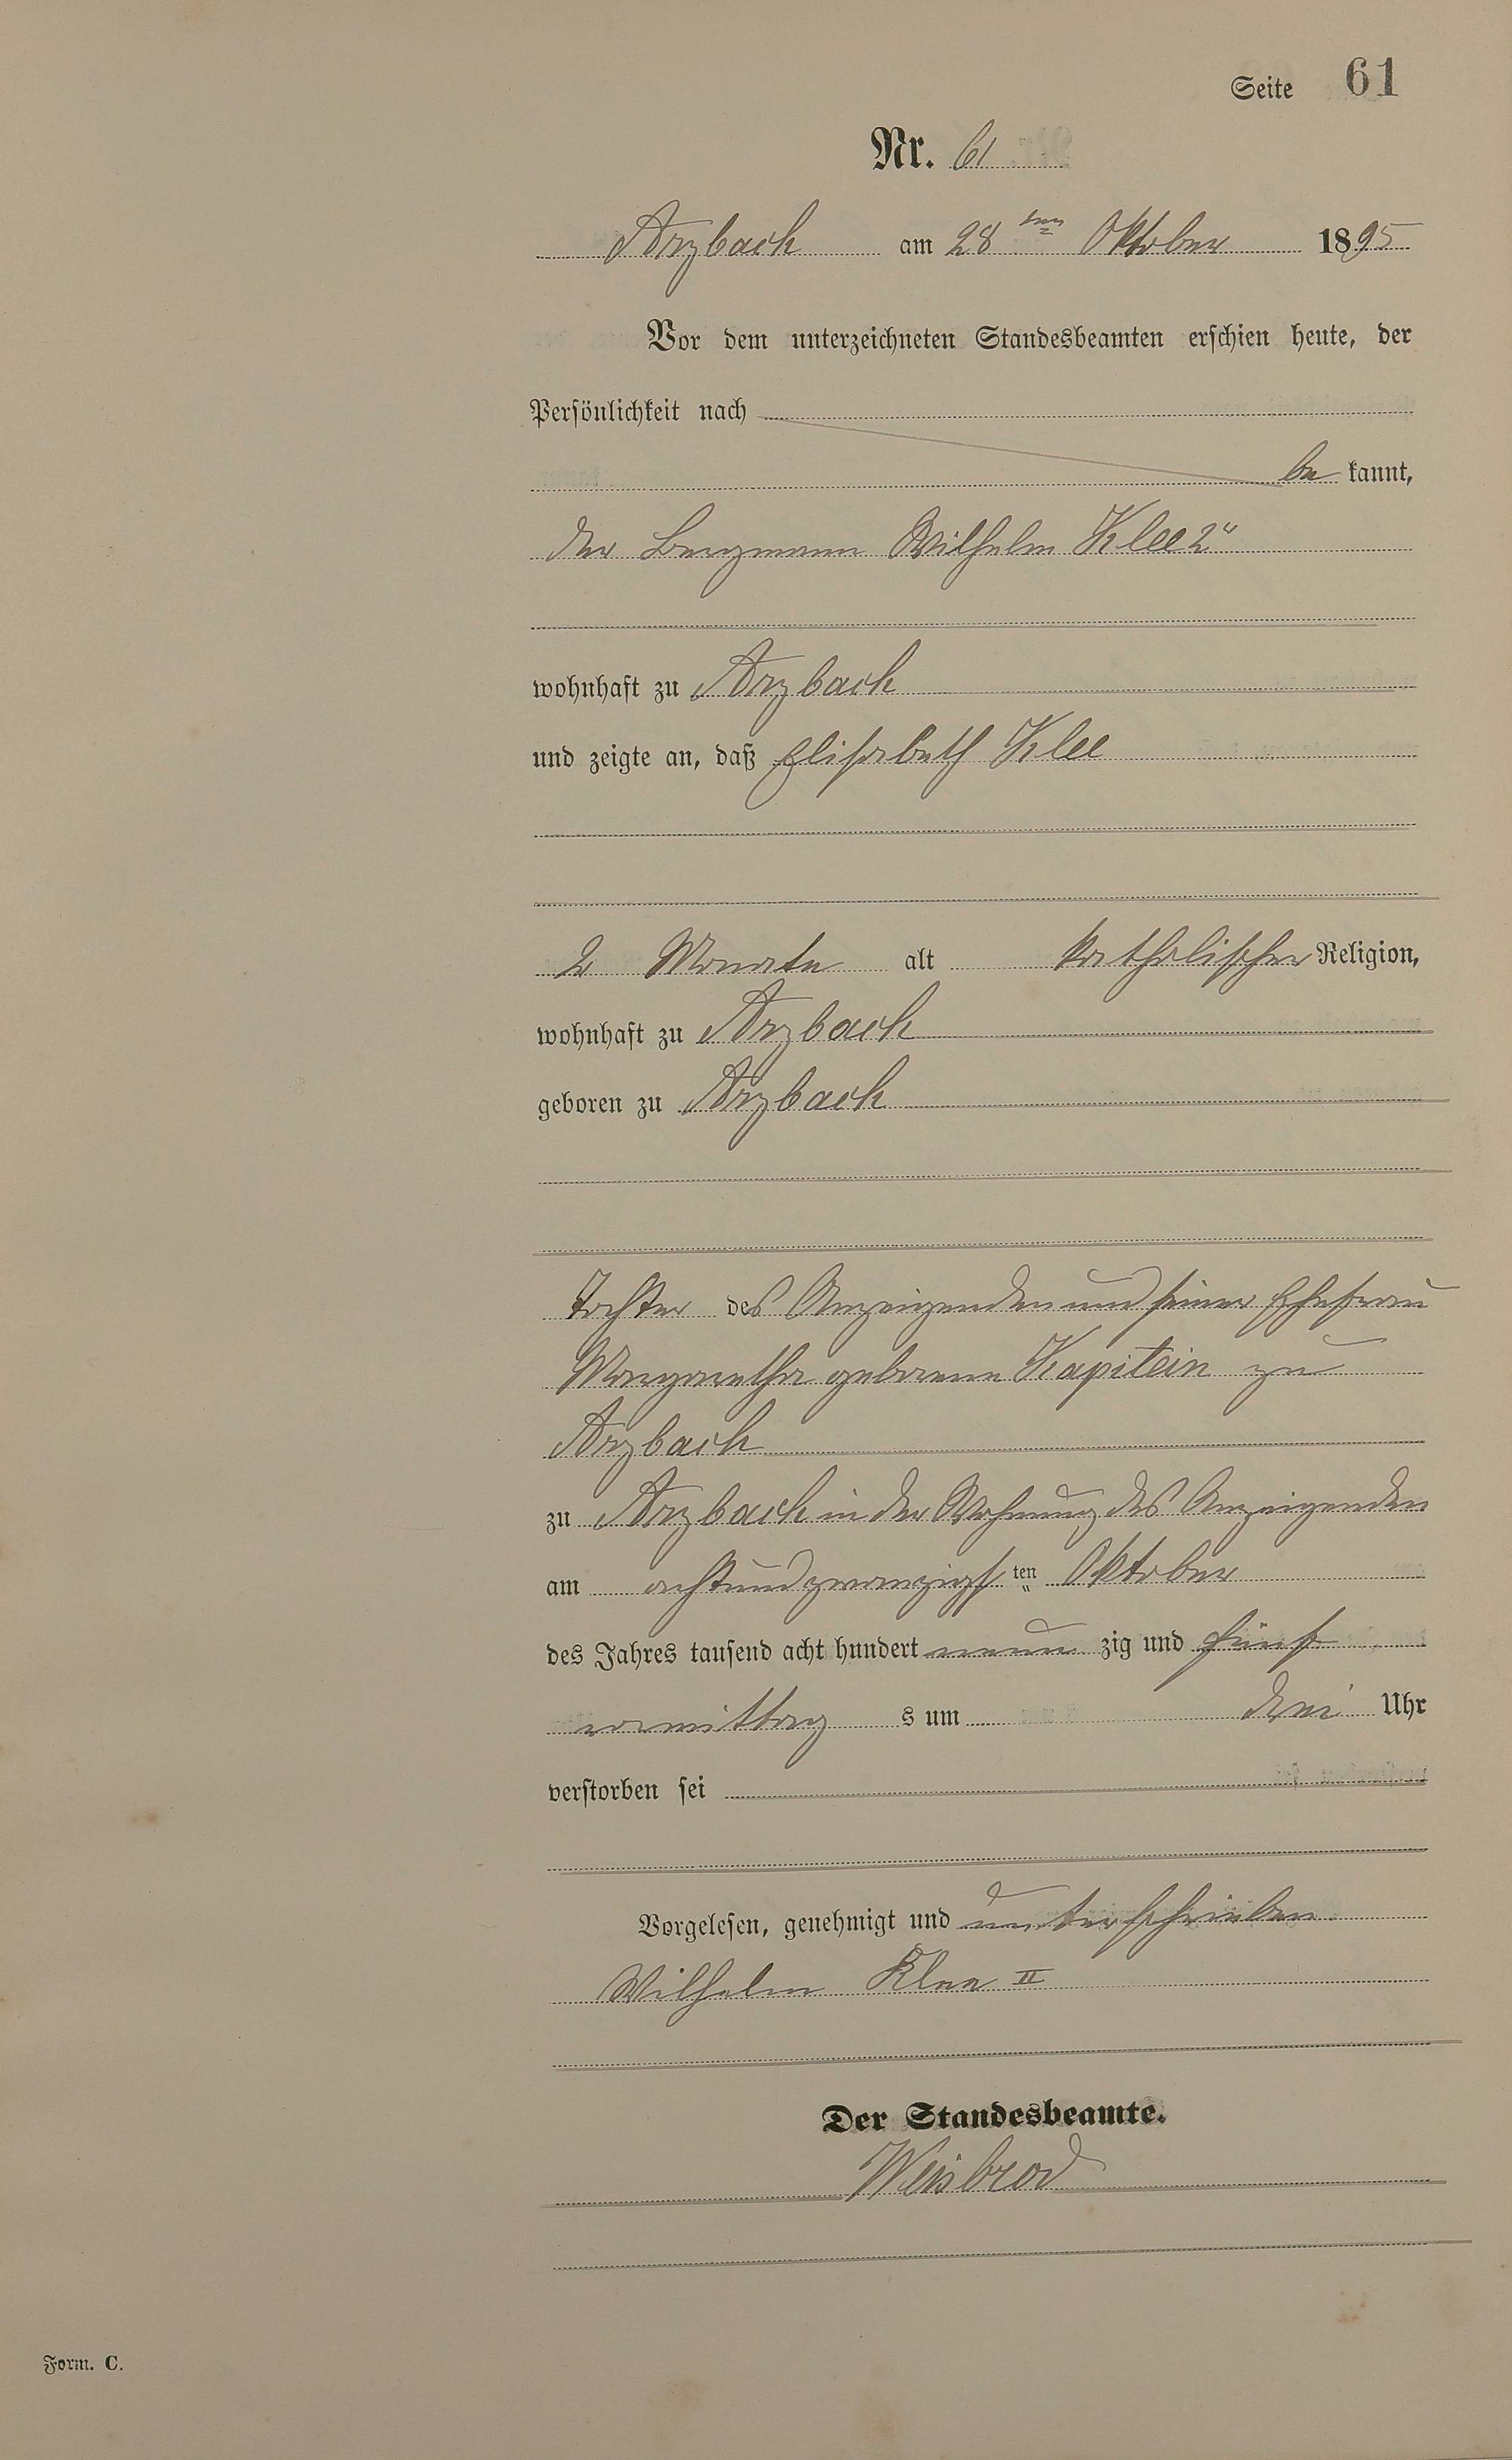 Seite 61
Nr. 61
Arzbach am 28ten Oktober 1895
Vor dem unterzeichneten Standesbeamten erschien heute, der
Persönlichkeit nach
be kannt,
der Bergmann Wilhelm Klee 2"
wohnhaft zu Arzbach
und zeigte an, daß Elisabeth Klee
2 Monate alt katholischer Religion,
wohnhaft zu Arzbach
geboren zu Arzbach
Tochter des Anzeigenden und seiner Ehefrau
Margaretha geborene Kapitein zu
Arzbach
zu Arzbach in der Wohnung des Anzeigenden
am achtundzwanzigsten Oktober
des Jahres tausend acht hundert neun zig und fünf
vormittag s um drei Uhr
verstorben sei
Vorgelesen, genehmigt und unterschrieben
Wilhelm Klee II
Der Standesbeamte.
Weisbrod
Form. C.